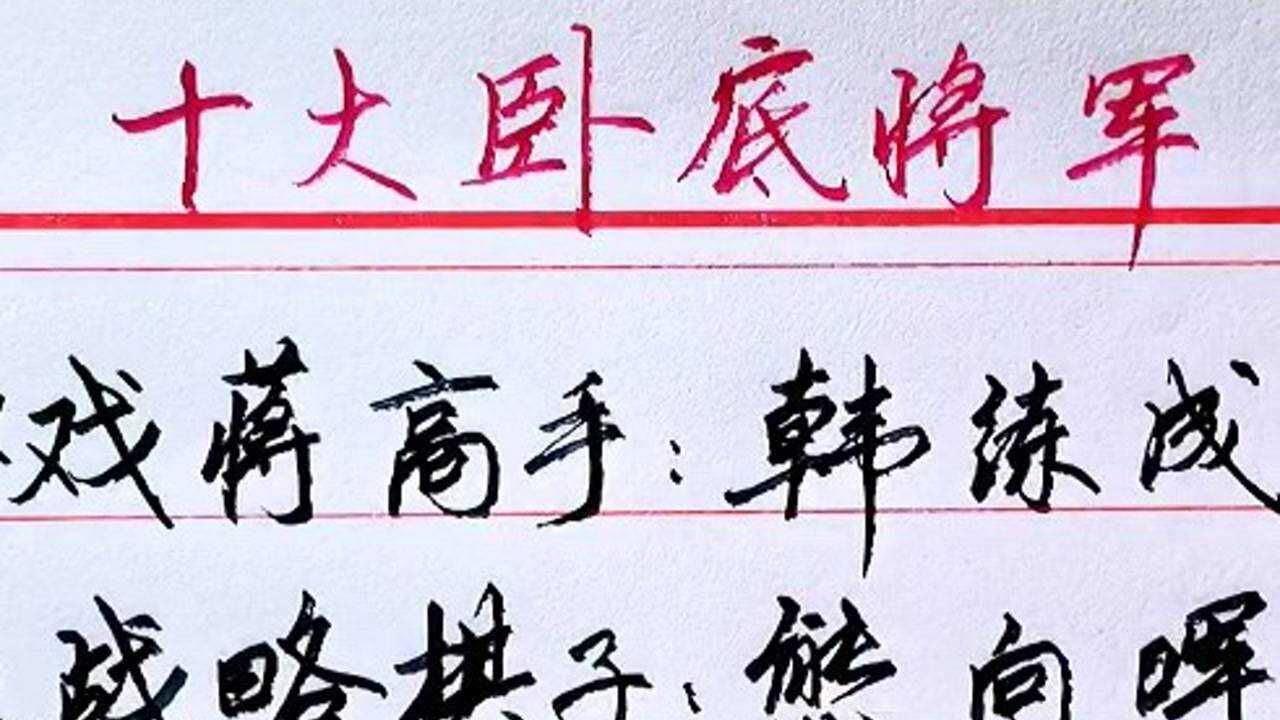 十大卧底将军
戏蒋高手：韩练成
战略棋子：熊向晖